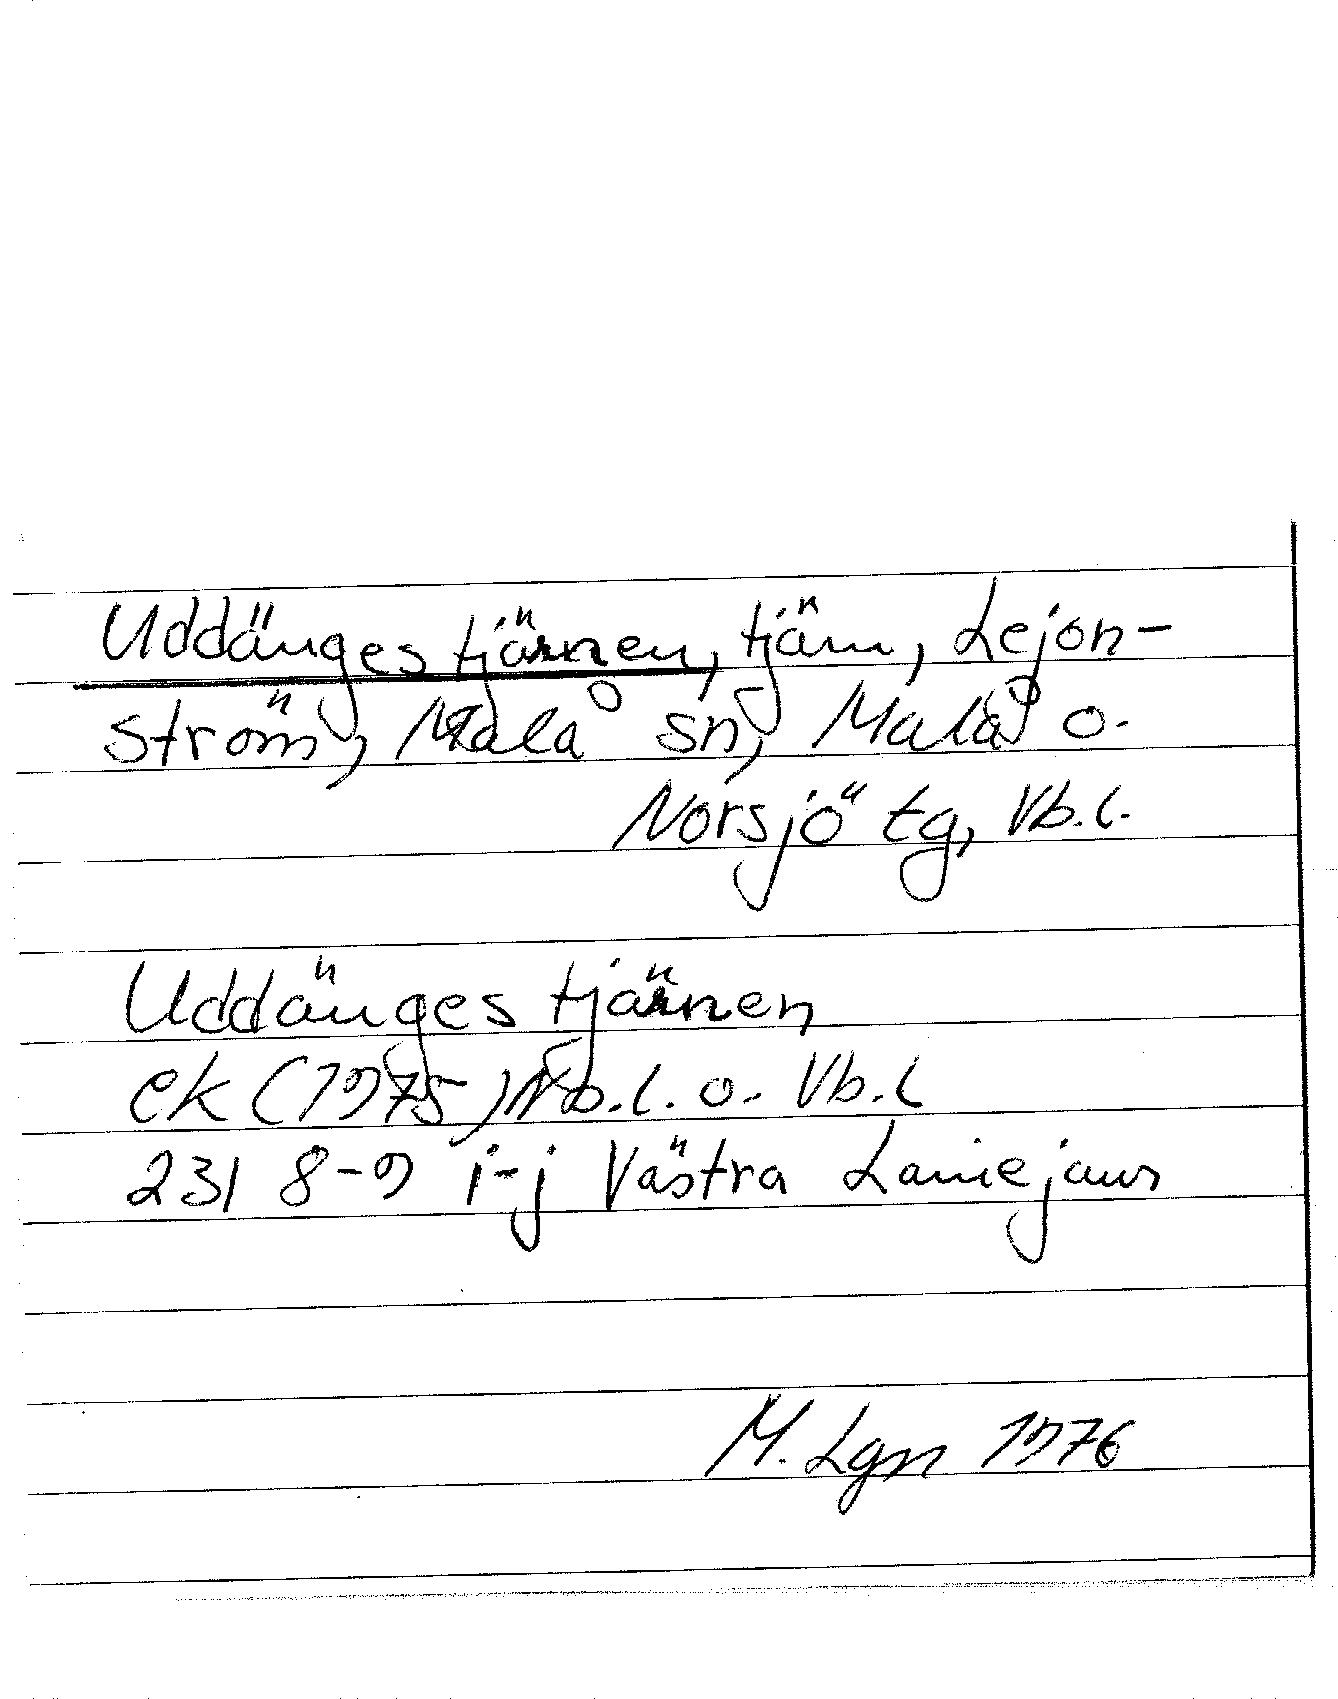 Uddängestjärnen, tjärn, Lejon-
ström, Malå sn, Malå o.
Norsjö tg, Vb.l.
Uddängestjärnen
ek (1975) Nb.l. o. Vb.l
231 8-9 i-j Västra Lainejaur
M. Lgn 1976